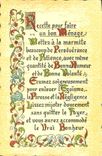 Recette pour faire
un bon Ménage
Mettez à la marmite
beaucoup de Prévenance
et de Patience, avec même
quantité de Bonne Humeur
et de Bonne Volonté.
Ecumez soigneusement
pour enlever l'Egoïsme
la Paresse et la Négligence
Laissez mijoter doucement
sans quitter la Foyer
et vous aurez accommodé
le Vrai Bonheur